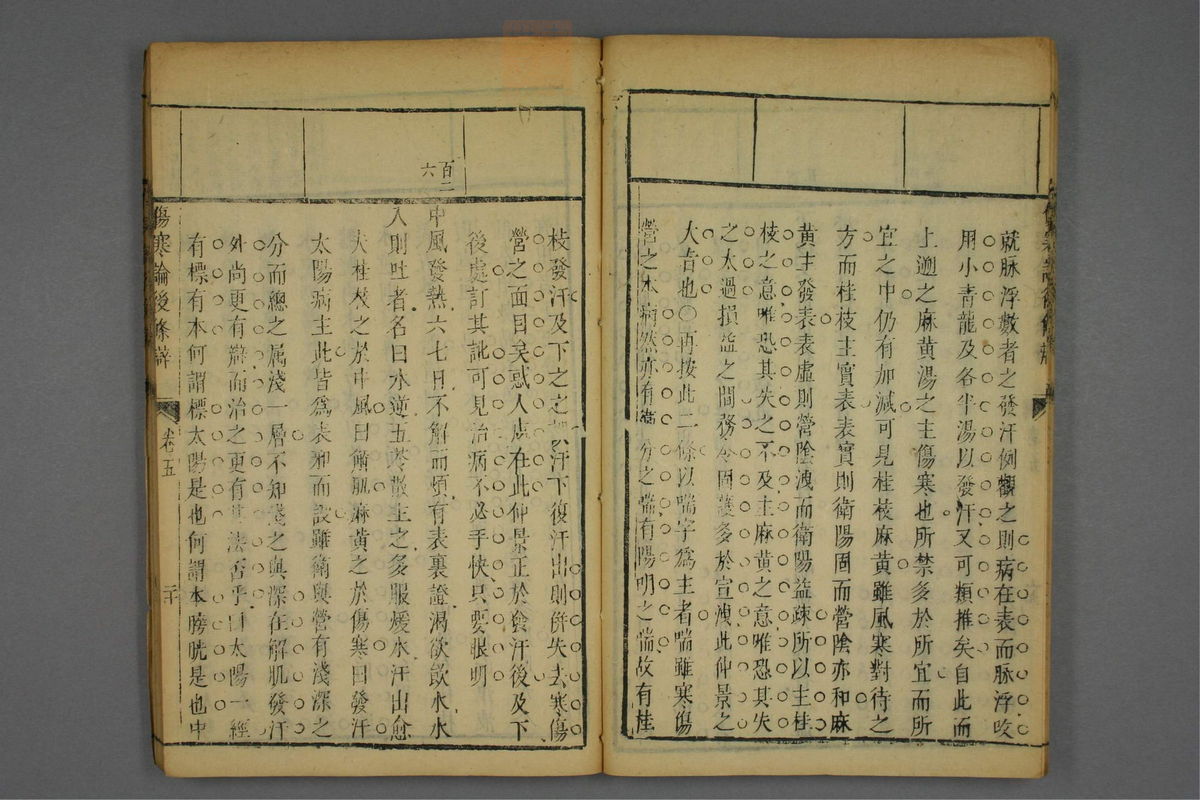 就脉浮數者之發汗例觀之則病在表而脉浮咳
用小青龍及各半湯以發汗又可類推矣自此而
上遡之麻黄湯之主傷寒也所禁多於所宜而所
宜之中仍有加減可見桂枝麻黄雖風寒對待之
方而桂枝主實表表實則衛陽固而營陰亦和麻
黄主發表表虛則營陰洩而衛陽益疎所以主桂
枝之意唯恐其失之不及主麻黄之意唯恐其失
之太過損益之間務令固護多於宣洩此仲景之
大吉也〇再按此二條以喘字爲主者喘雖寒傷
營之本病然亦有分之喘有陽明之喘故有桂
枝發汗及下之之汗下復汗出則併失去寒傷
營之面目矣惑人處在此仲景正於發汗後及下
後處訂其訛可見治病不必手快只要眼明
百二六
中風發熱六七日不解而煩有表裏證渴欲飲水水
入則吐者名曰水逆五苓散主之多服煖水汗出愈
夫桂枝之於中風曰解肌麻黄之於傷寒曰發汗
太陽病主此皆爲表邪而設雖衛與營有淺深之
分而總之属淺一層不知淺之與深在解肌發汗
外尚更有辯而治之更有法否乎曰太陽一經
有標有本何謂標太陽是也何謂本膀胱是也中
傷寒論後條辯
卷五
二十